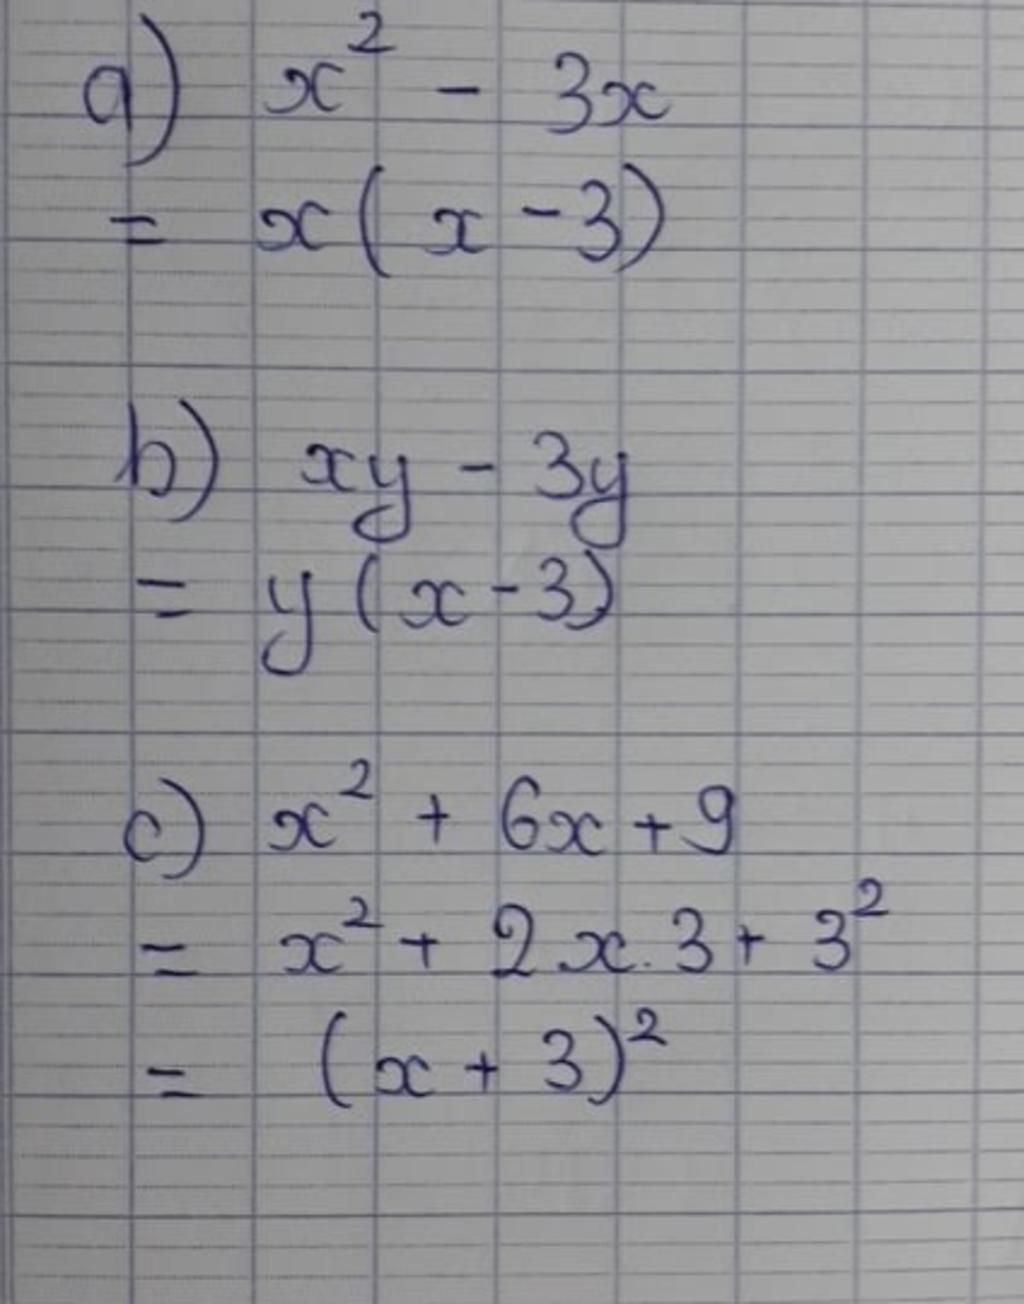 a) x² - 3x
= x( x - 3)
b) xy - 3y
= y (x - 3)
c) x² + 6x + 9
= x² + 2x.3 + 3²
= (x + 3)²